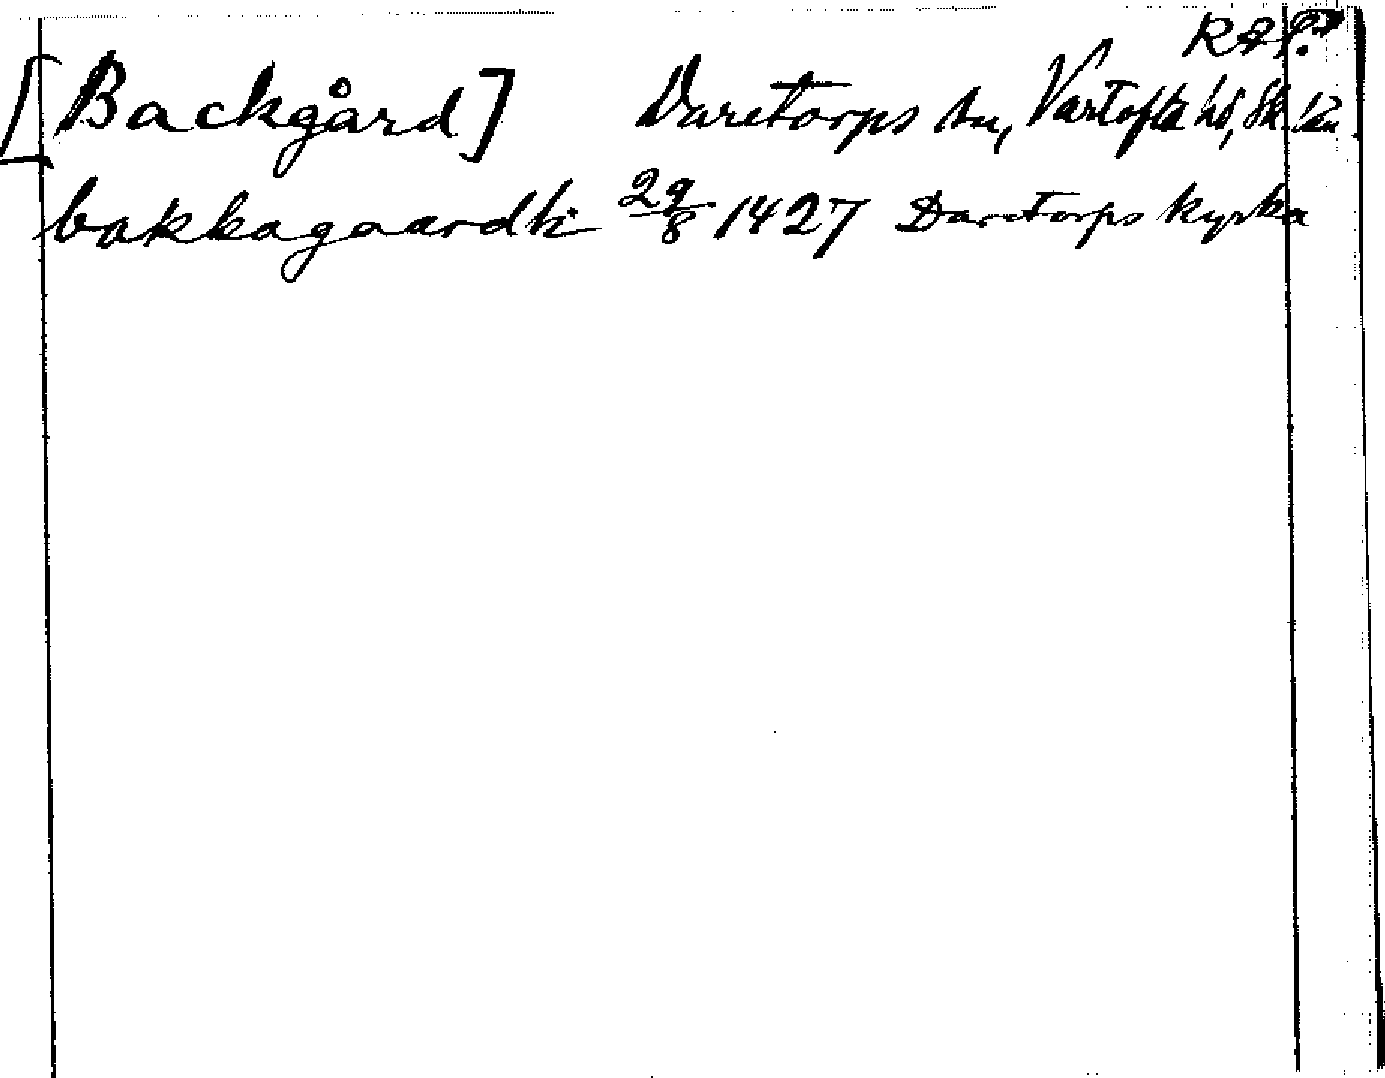 RAP.
[Backgård] Daretorps sn, Vartofta hd, Sk. län
bakkagaardh 29/8 1427 Daretorps kyrka